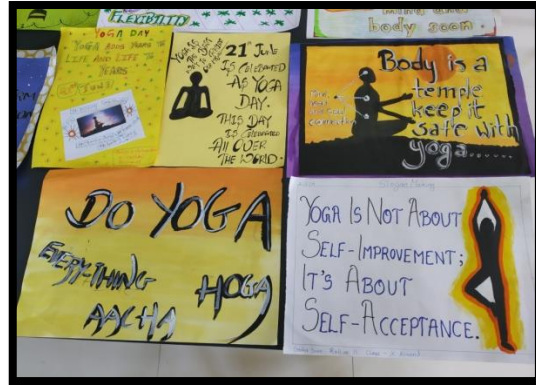 FLEXIBILITY
body soon.
YOGA DAY
YOGA ADDS YEARS TO
LIFE AND LIFE TO
YEARS
21st June
IS CELEBRATED
AS YOGA
DAY.
THIS DAY
IS CELEBRATED
All OVER
THE WORLD.
Body is a
temple
keep it
safe with
yoga.......
DO YOGA
EVERY-THING
AACHA HOGA
YOGA IS NOT ABOUT
SELF-IMPROVEMENT;
IT'S ABOUT
SELF-ACCEPTANCE.